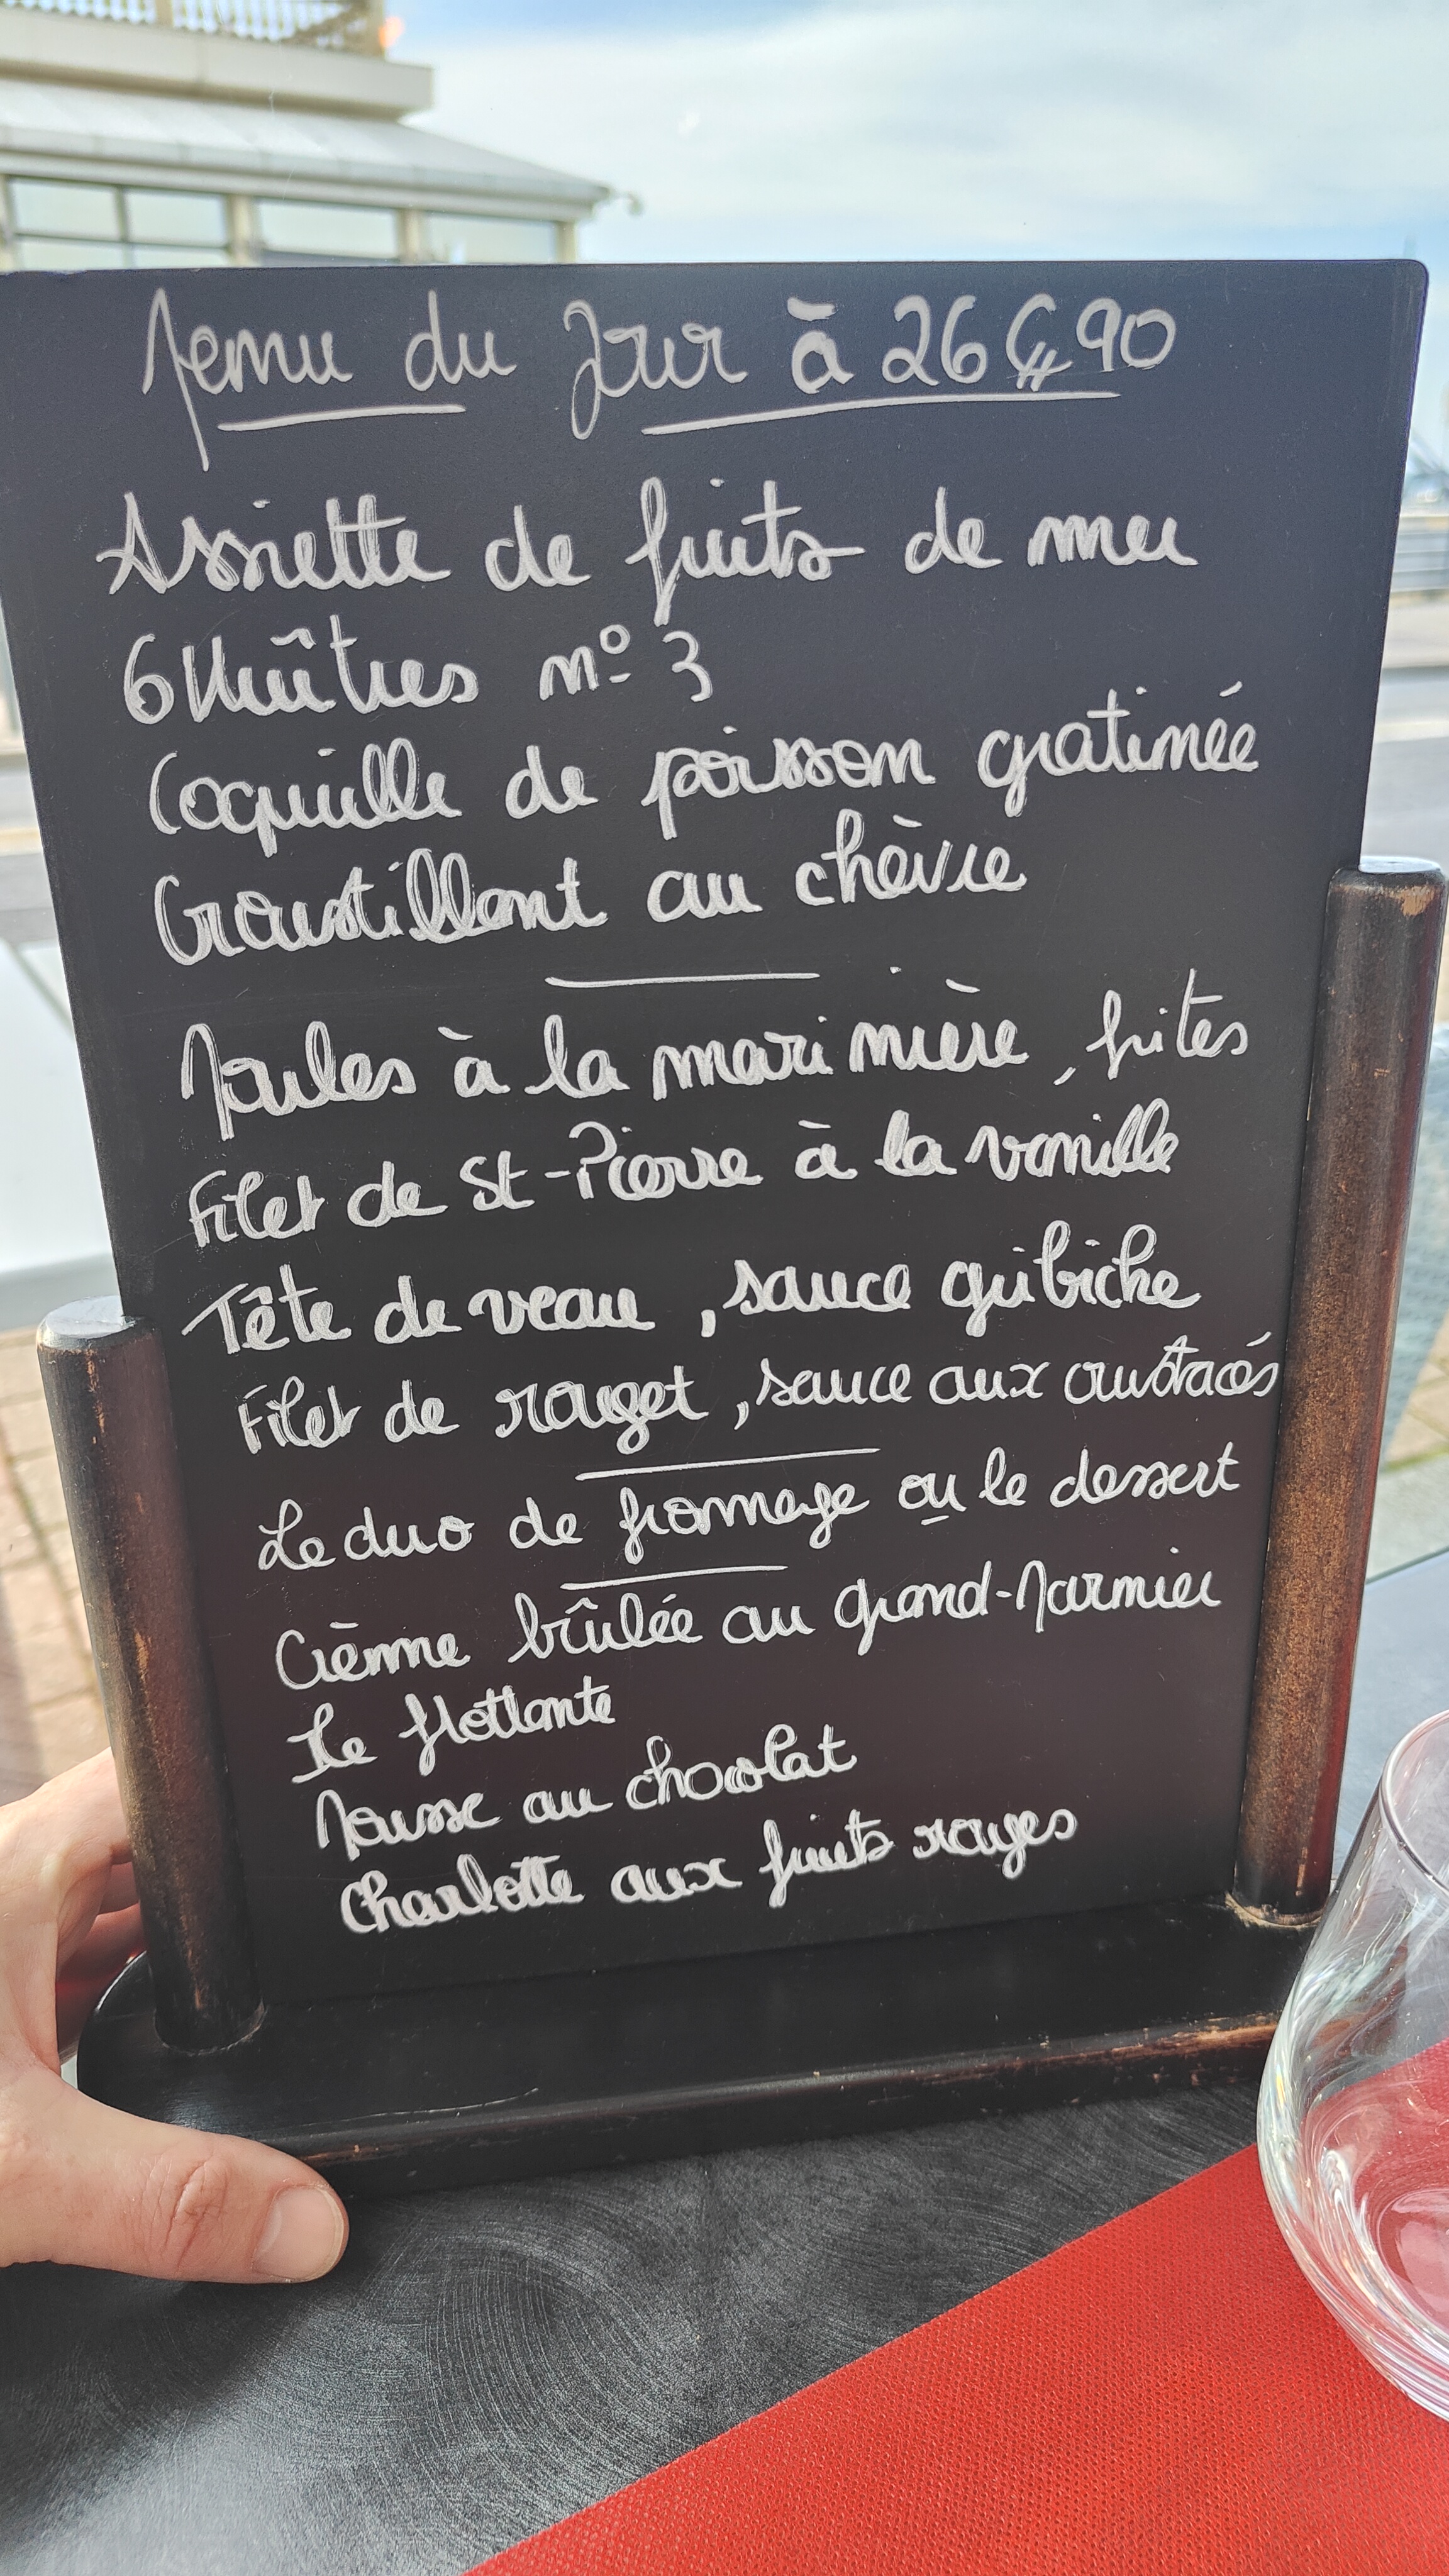 Menu du Jour à 26€90
Assiette de fruits de mer
6 Huîtres n° 3
Coquille de poisson gratinée
Croustillant au chèvre
Moules à la marinière, frites
Filet de St-Pierre à la vanille
Tête de veau, sauce gribiche
Filet de rouget, sauce aux crustacés
Le duo de fromage ou le dessert
Crème brûlée au grand-marnier
Ile flottante
Mousse au chocolat
Charlotte aux fruits rouges